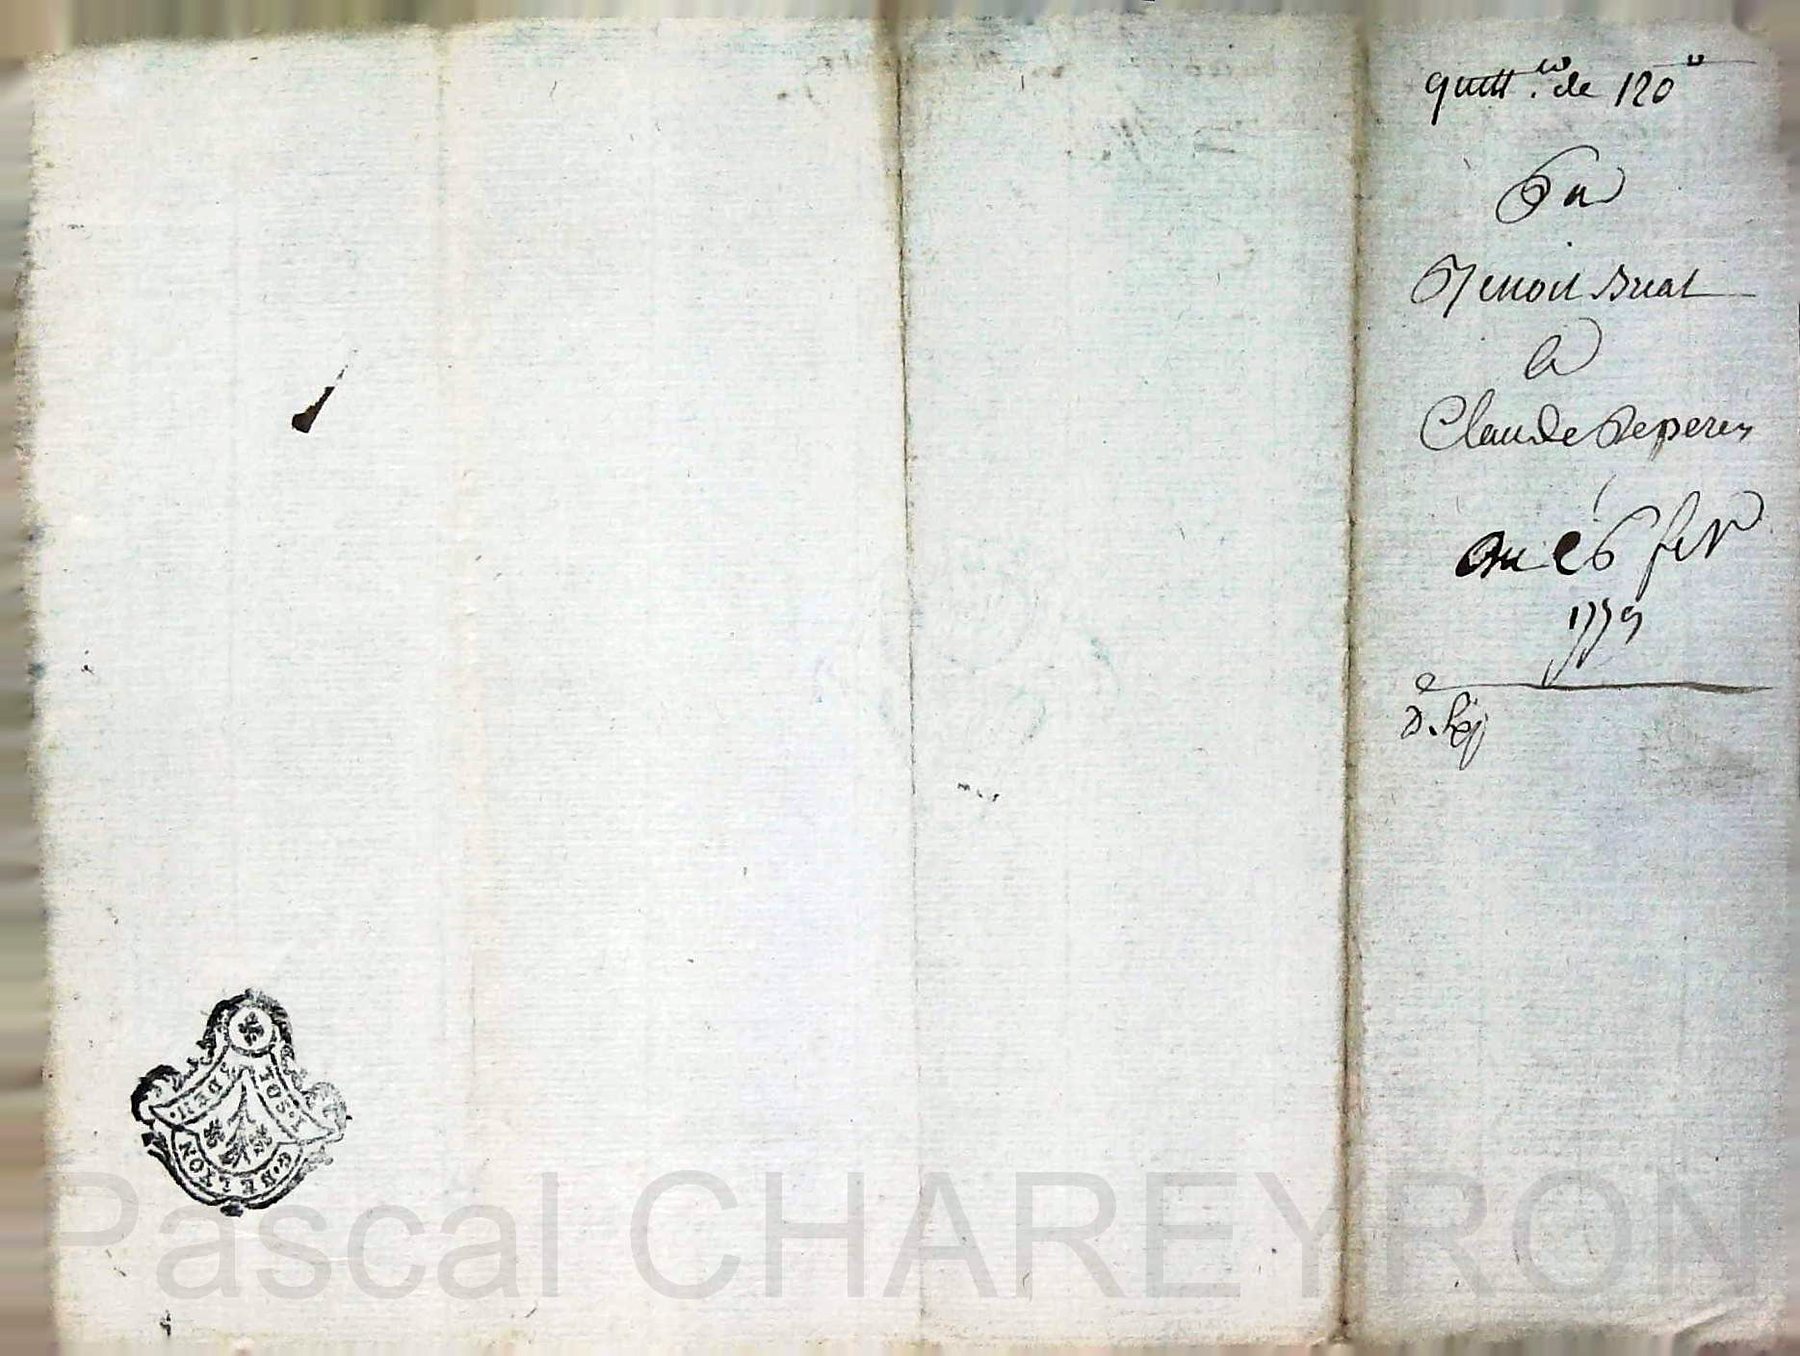 quitt.ce de 120#
Par
Benoit Buat
a
Claude Deperey
Du 26 fev
1779
D. Exp
I. SOL
3. DEN.
G. DE LYON
Pascal CHAREYRON